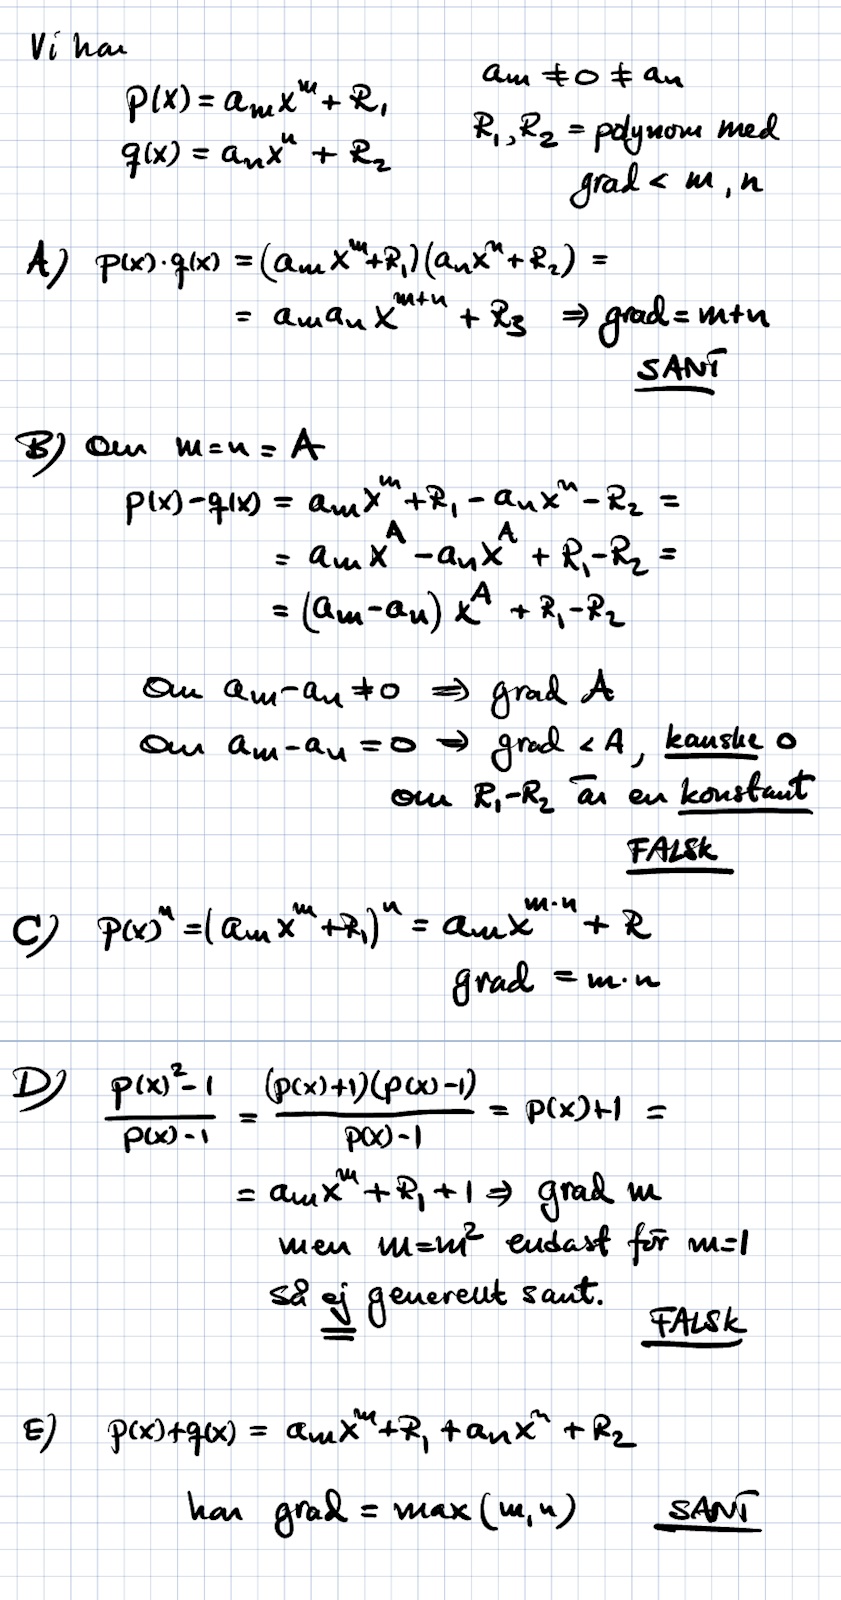 Vi har
p(x) = a_m x^m + R_1
a_m ≠ 0 ≠ a_n
q(x) = a_n x^n + R_2
R_1, R_2 = polynom med
grad < m, n
A) p(x)·q(x) = (a_m x^m + R_1)(a_n x^n + R_2) =
= a_m a_n x^{m+n} + R_3 ⇒ grad = m+n
SANT
B) Om m = n = A
p(x) - q(x) = a_m x^m + R_1 - a_n x^n - R_2 =
= a_m x^A - a_n x^A + R_1 - R_2 =
= (a_m - a_n) x^A + R_1 - R_2
Om a_m - a_n ≠ 0 ⇒ grad A
Om a_m - a_n = 0 ⇒ grad < A, kanske 0
om R_1 - R_2 är en konstant
FALSK
C) p(x)^n = (a_m x^m + R_1)^n = a_m x^{m·n} + R
grad = m·n
D) \frac{p(x)^2 - 1}{p(x) - 1} = \frac{(p(x)+1)(p(x)-1)}{p(x)-1} = p(x)+1 =
= a_m x^m + R_1 + 1 ⇒ grad m
men m = m^2 endast för m=1
så ej generellt sant.
FALSK
E) p(x)+q(x) = a_m x^m + R_1 + a_n x^n + R_2
har grad = max(m, n) SANT